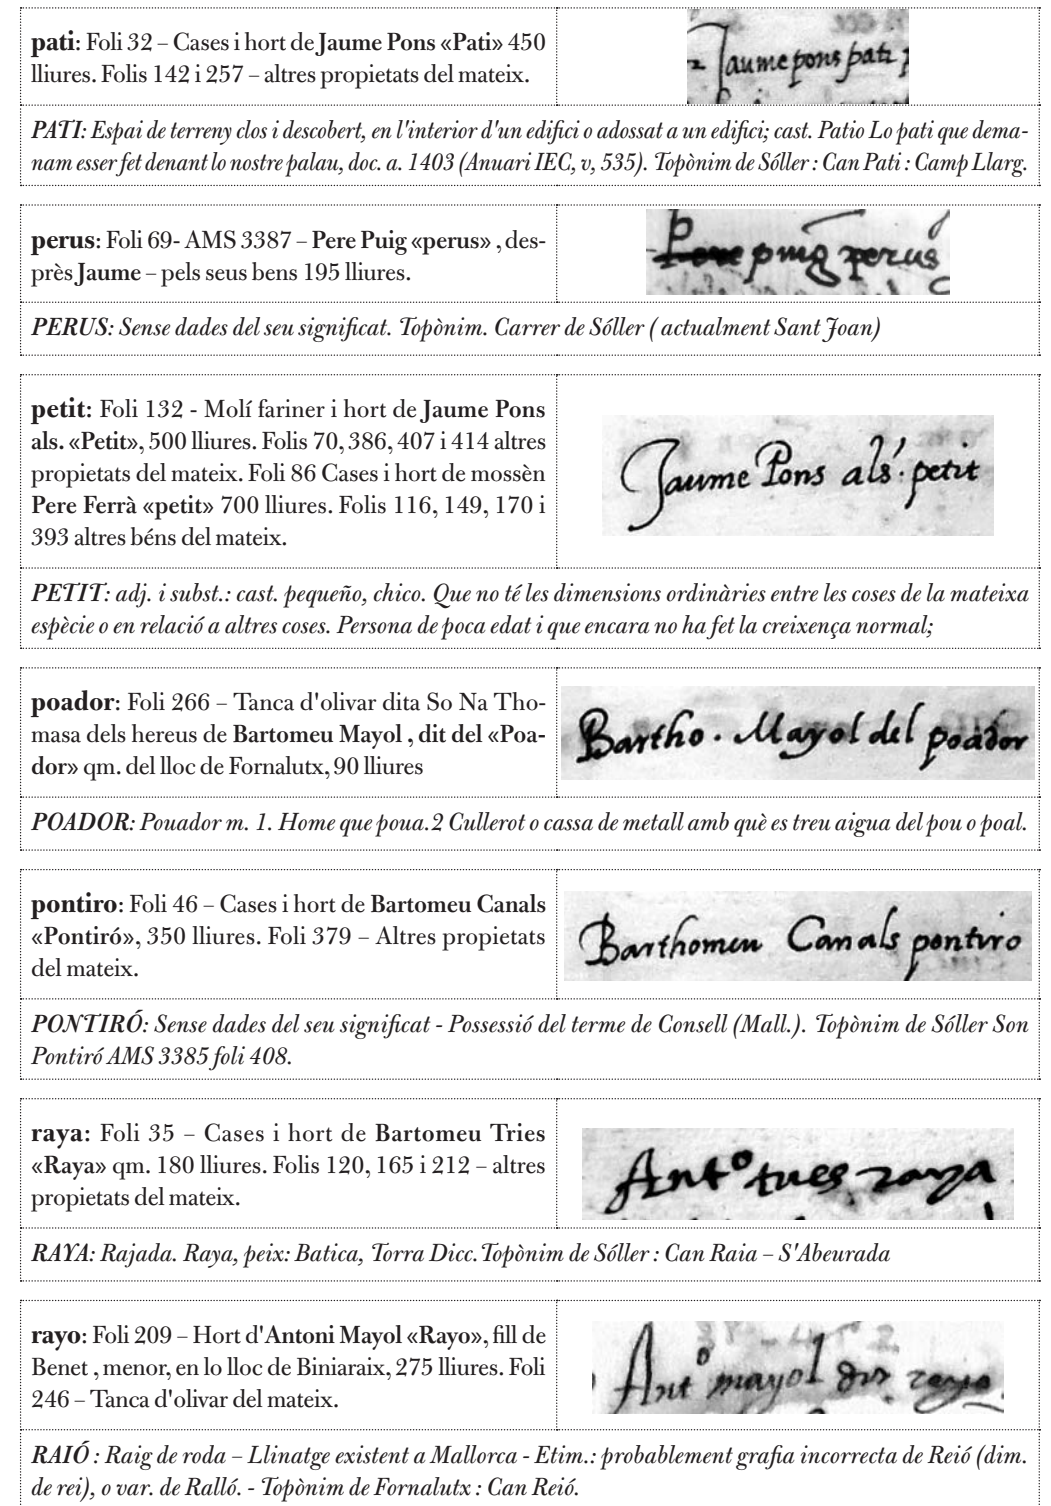 pati: Foli 32 – Cases i hort de Jaume Pons «Pati» 450
lliures. Folis 142 i 257 – altres propietats del mateix.
Jaume pons pati
PATI: Espai de terreny clos i descobert, en l'interior d'un edifici o adossat a un edifici; cast. Patio Lo pati que dema-
nam esser fet denant lo nostre palau, doc. a. 1403 (Anuari IEC, v, 535). Topònim de Sóller : Can Pati : Camp Llarg.
perus: Foli 69- AMS 3387 – Pere Puig «perus» , des-
près Jaume – pels seus bens 195 lliures.
Pere puig perus
PERUS: Sense dades del seu significat. Topònim. Carrer de Sóller ( actualment Sant Joan)
petit: Foli 132 - Molí fariner i hort de Jaume Pons
als. «Petit», 500 lliures. Folis 70, 386, 407 i 414 altres
propietats del mateix. Foli 86 Cases i hort de mossèn
Pere Ferrà «petit» 700 lliures. Folis 116, 149, 170 i
393 altres béns del mateix.
Jaume Pons als. petit
PETIT: adj. i subst.: cast. pequeño, chico. Que no té les dimensions ordinàries entre les coses de la mateixa
espècie o en relació a altres coses. Persona de poca edat i que encara no ha fet la creixença normal;
poador: Foli 266 – Tanca d'olivar dita So Na Tho-
masa dels hereus de Bartomeu Mayol , dit del «Poa-
dor» qm. del lloc de Fornalutx, 90 lliures
Bartho. Mayol del poador
POADOR: Pouador m. 1. Home que poua.2 Cullerot o cassa de metall amb què es treu aigua del pou o poal.
pontiro: Foli 46 – Cases i hort de Bartomeu Canals
«Pontiró», 350 lliures. Foli 379 – Altres propietats
del mateix.
Barthomeu Canals pontiro
PONTIRÓ: Sense dades del seu significat - Possessió del terme de Consell (Mall.). Topònim de Sóller Son
Pontiró AMS 3385 foli 408.
raya: Foli 35 – Cases i hort de Bartomeu Tries
«Raya» qm. 180 lliures. Folis 120, 165 i 212 – altres
propietats del mateix.
Antº tries raya
RAYA: Rajada. Raya, peix: Batica, Torra Dicc. Topònim de Sóller : Can Raia – S'Abeurada
rayo: Foli 209 – Hort d'Antoni Mayol «Rayo», fill de
Benet , menor, en lo lloc de Biniaraix, 275 lliures. Foli
246 – Tanca d'olivar del mateix.
Antº mayol rayo
RAIÓ : Raig de roda – Llinatge existent a Mallorca - Etim.: probablement grafia incorrecta de Reió (dim.
de rei), o var. de Ralló. - Topònim de Fornalutx : Can Reió.